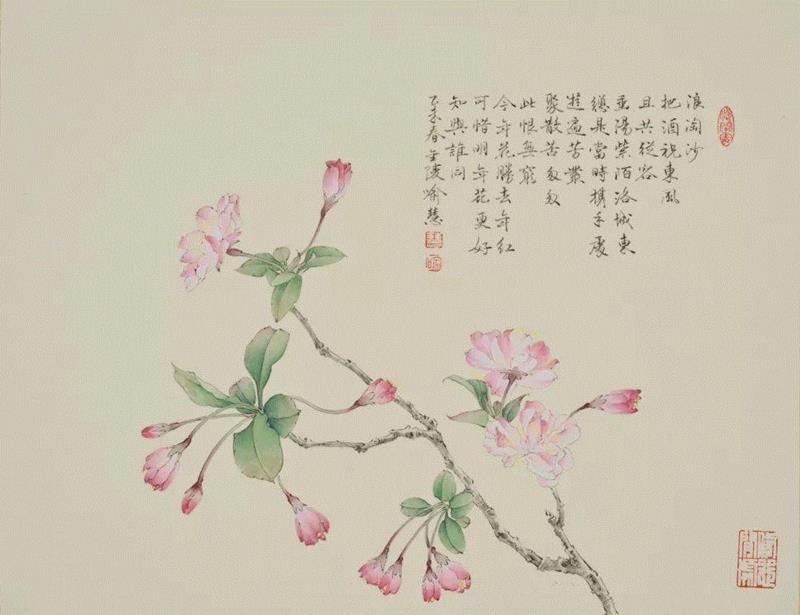 浪淘沙
把酒祝東風
且共從容
垂陽紫陌洛城東
總是當時攜手處
遊遍芳叢
聚散苦匆匆
此恨無窮
今年花勝去年紅
可惜明年花更好
知與誰同
乙未春金陵喻慧